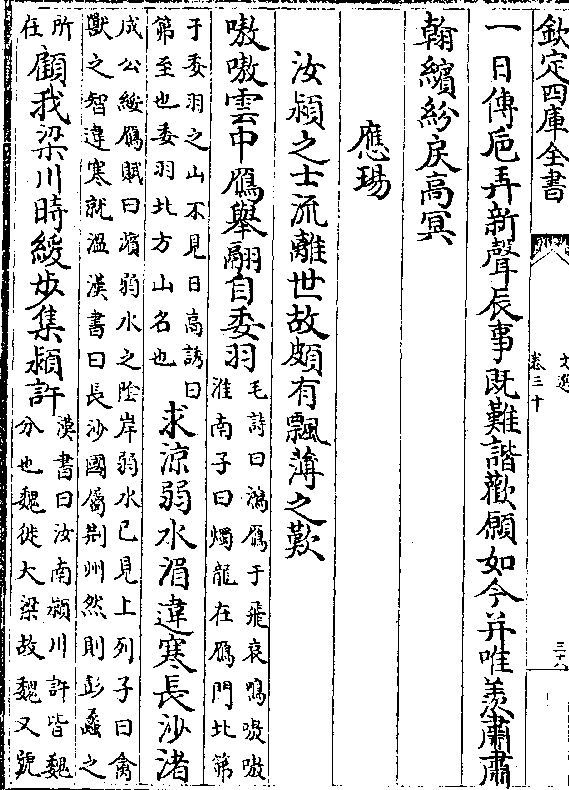 欽定四庫全書
文選
卷三十
三十八
一日傳巵弄新聲辰事既難諧歡願如今并唯羨肅肅
翰繽紛戾高冥
應瑒
汝潁之士流離世故頗有飄薄之歎
嗷嗷雲中鴈舉翮自委羽
毛詩曰鴻鴈于飛哀鳴嗷嗷
淮南子曰燭龍在鴈門北第
于委羽之山不見日高誘曰
第至也委羽北方山名也
求涼弱水湄違寒長沙渚
成公綏鴈賦曰濱弱水之陰岸弱水已見上列子曰禽
獸之智違寒就溫漢書曰長沙國屬荆州然則彭蠡之
所
在
顧我梁川時緩步集潁許
漢書曰汝南潁川許皆魏
分也魏徙大梁故魏又號